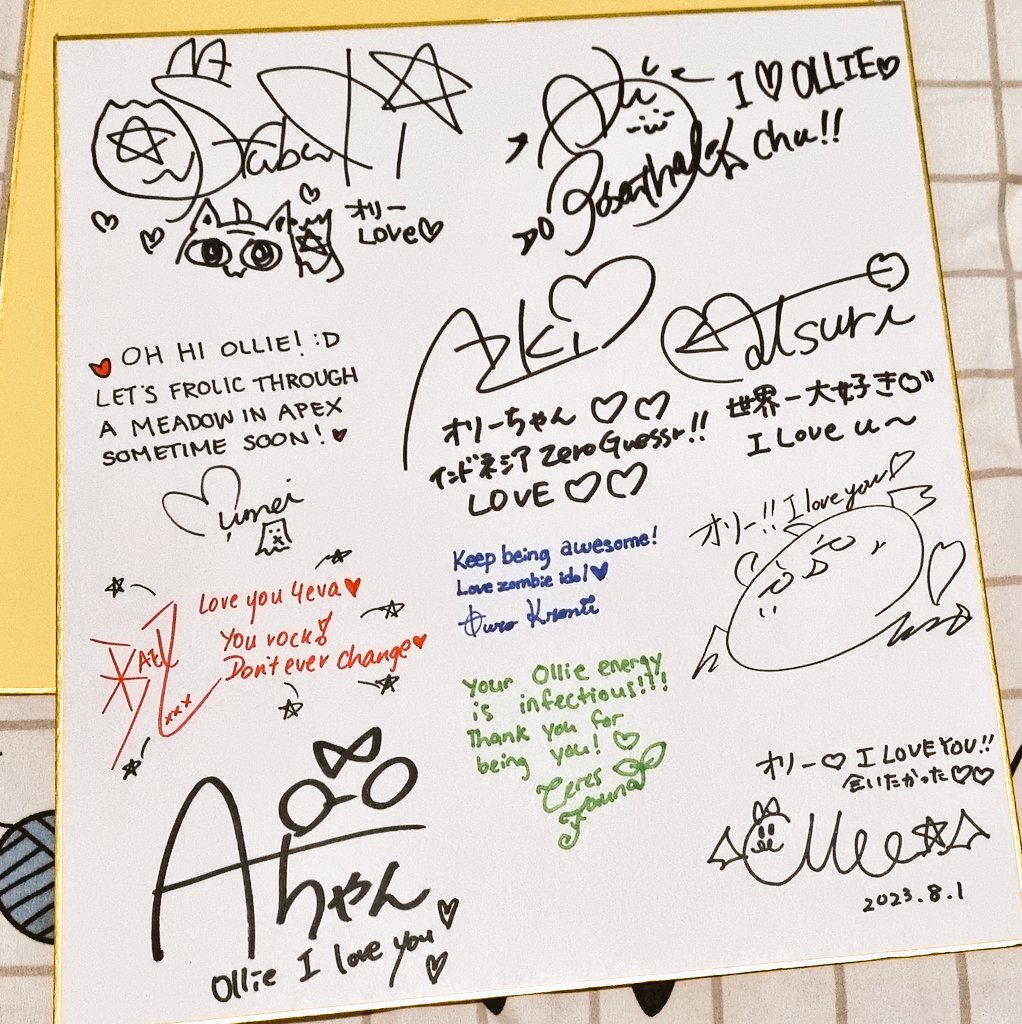 オリー
LOVE♡
I♡OLLIE♡
chu!!
Aki
オリーちゃん♡♡
インドネシア ZeroGuessr!!
LOVE♡♡
Matsuri
世界一大好き♡
I Love u〜
♥OH HI OLLIE! :D
LET'S FROLIC THROUGH
A MEADOW IN APEX
SOMETIME SOON!♥
Mumei
オリー!! I love you♡
Keep being awesome!
Love zombie idol♥
Ouro Kronii
Love you 4eva♥
You rock!
Don't ever change♥
xxx
Your Ollie energy
is infectious!!!
Thank you for
being you! ♡
Ceres
Fauna
オリー♡ I LOVE YOU!!
会いたかった♡♡
2023.8.1
Aちゃん
Ollie I love you